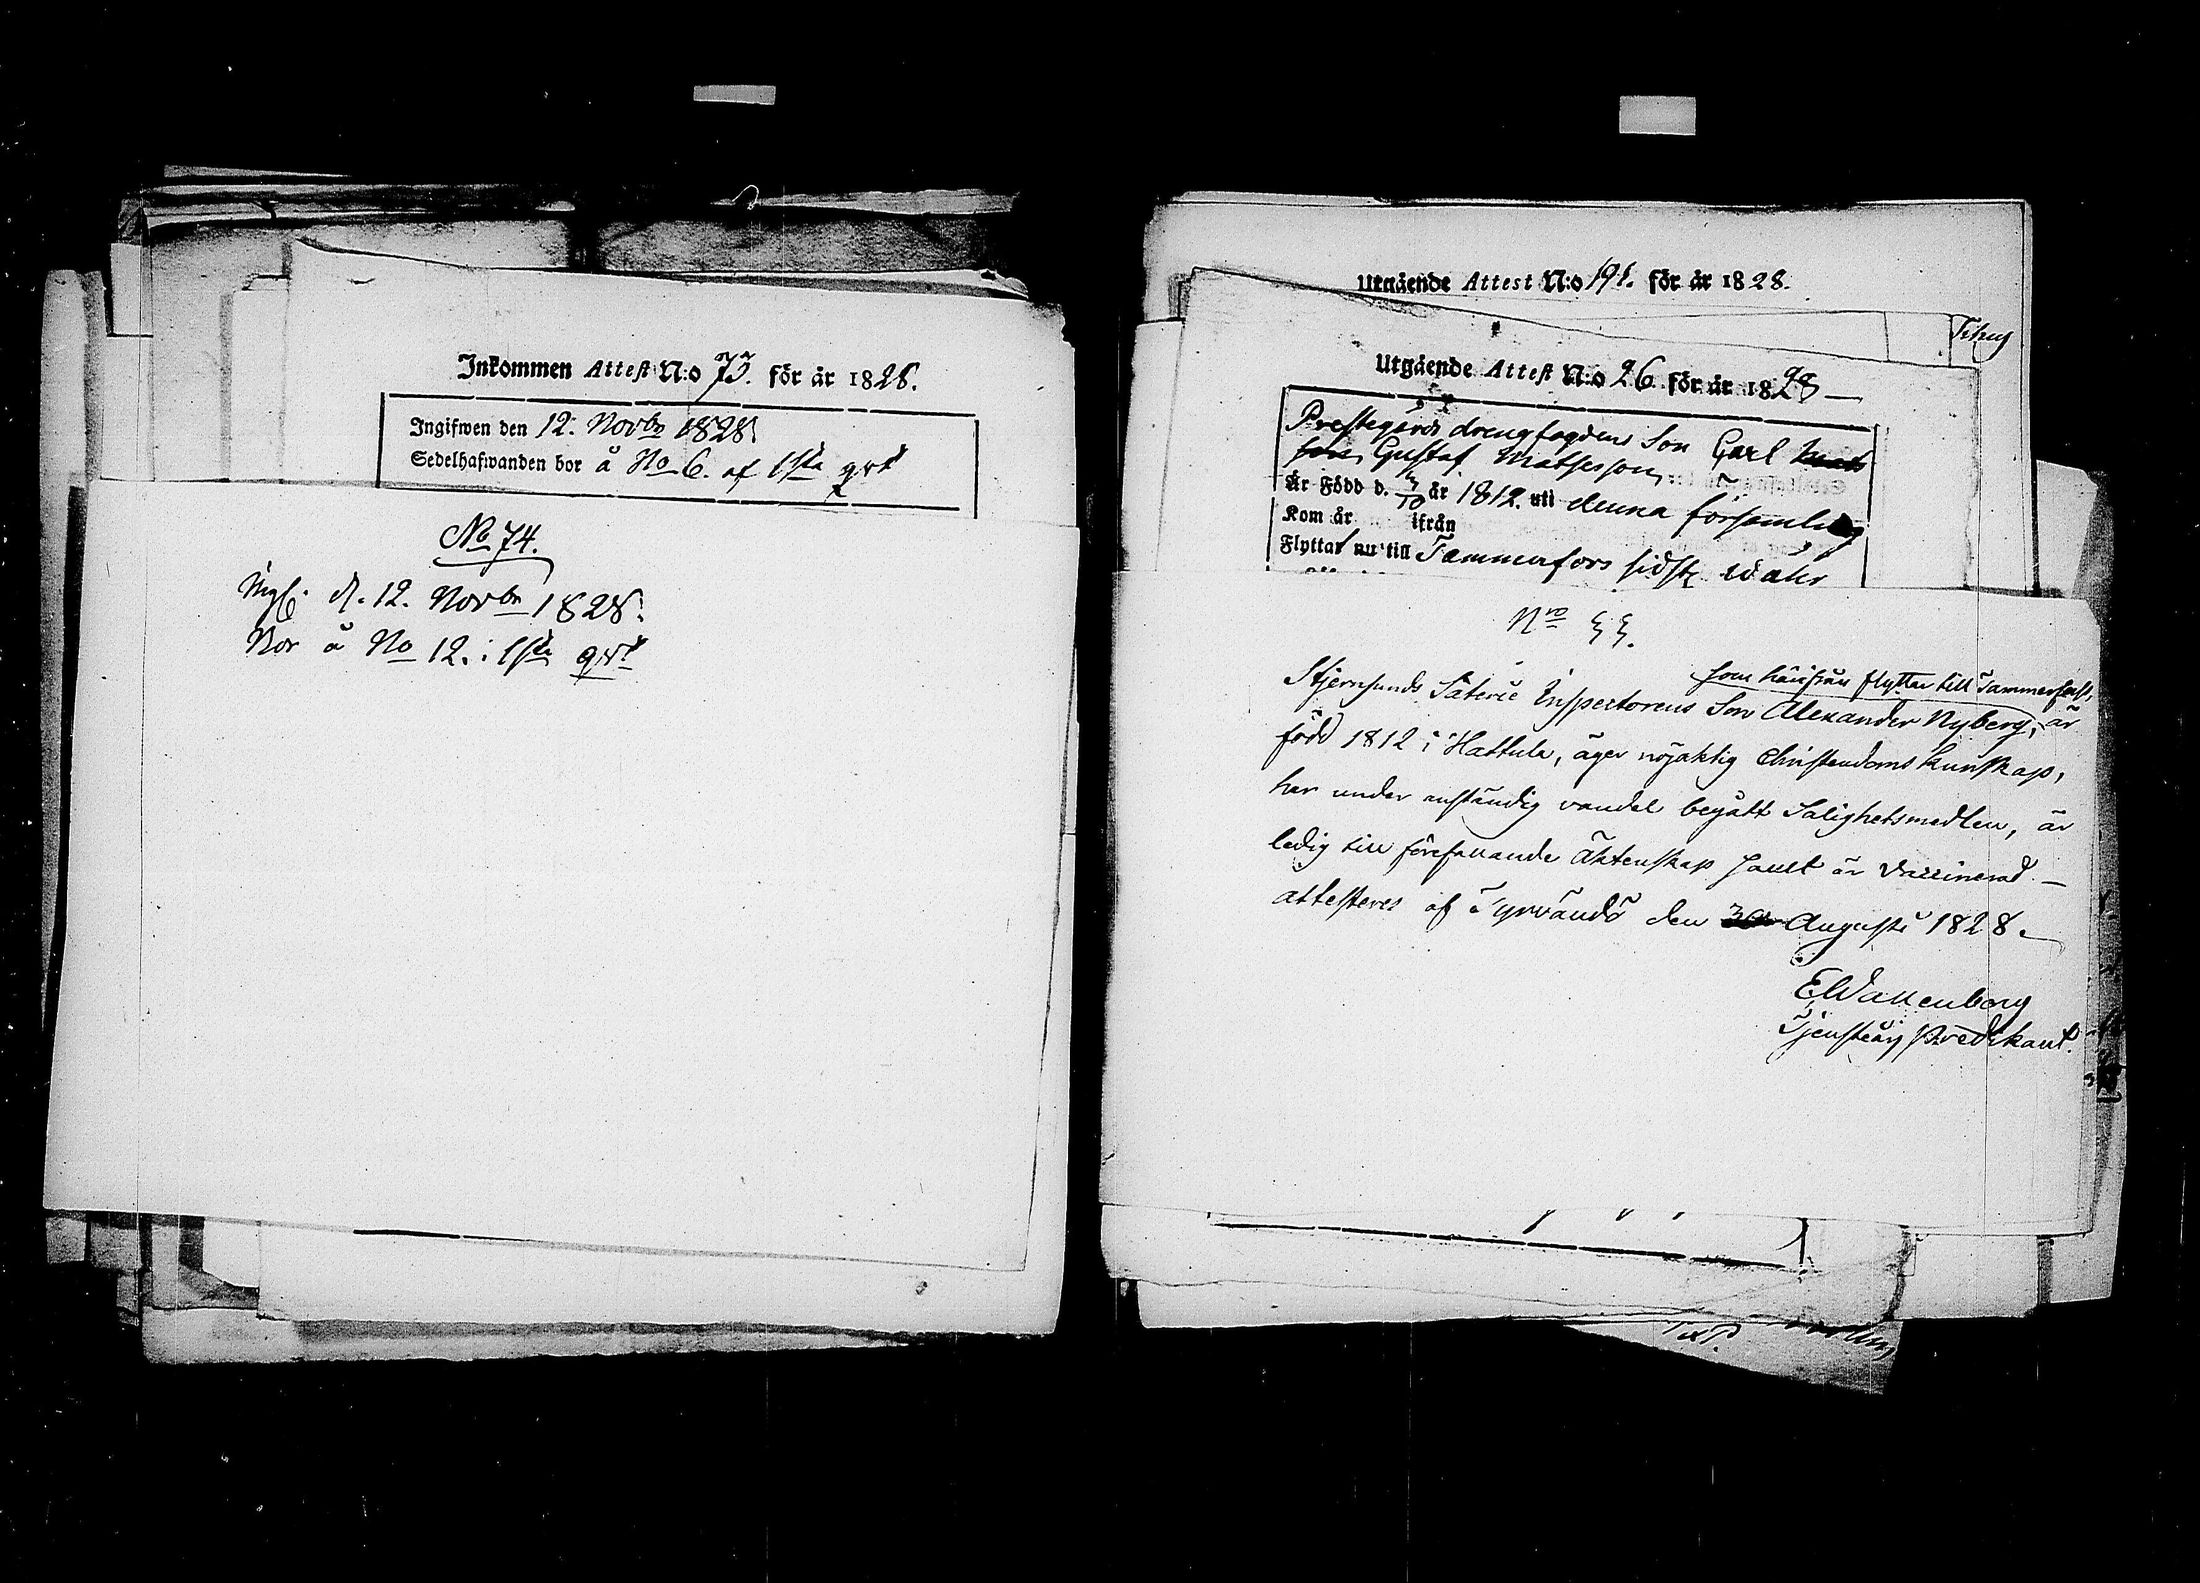 Inkommen Attest N:o 73. för år 1828.
Ingifwen den 12. Novbr 1828.
Sedelhafwanden bor å No 6. af 1sta qrt
No 74.
Ingf. d. 12. Novbr 1828.
Bor å No 12. i 1sta qrt
Utgående Attest N:o 191. för år 1828.
Utgående Attest N:o 26 för år 1828
Prestegårds drengfogdens Son Carl
Gustaf Matsesson
Är Född d. år 1812. uti denna församling
Kom år ifrån
Flyttar nu till Tammerfors sidste wåhr
Nro 55.
som härifrån flyttar till Tammerfors,
Stjernsunds Säterie Inspectorens Son Alexander Nyberg, är
född 1812 i Hattula, äger nöjaktig Christendoms kunskap,
har under anständig vandel begått Salighetsmedlen, är
ledig till förefallande Äktenskap samt är vaccinerad –
attesteres af Tyrvändö den Augusti 1828.
EWallenborg
Tjenstgörg Predikant.